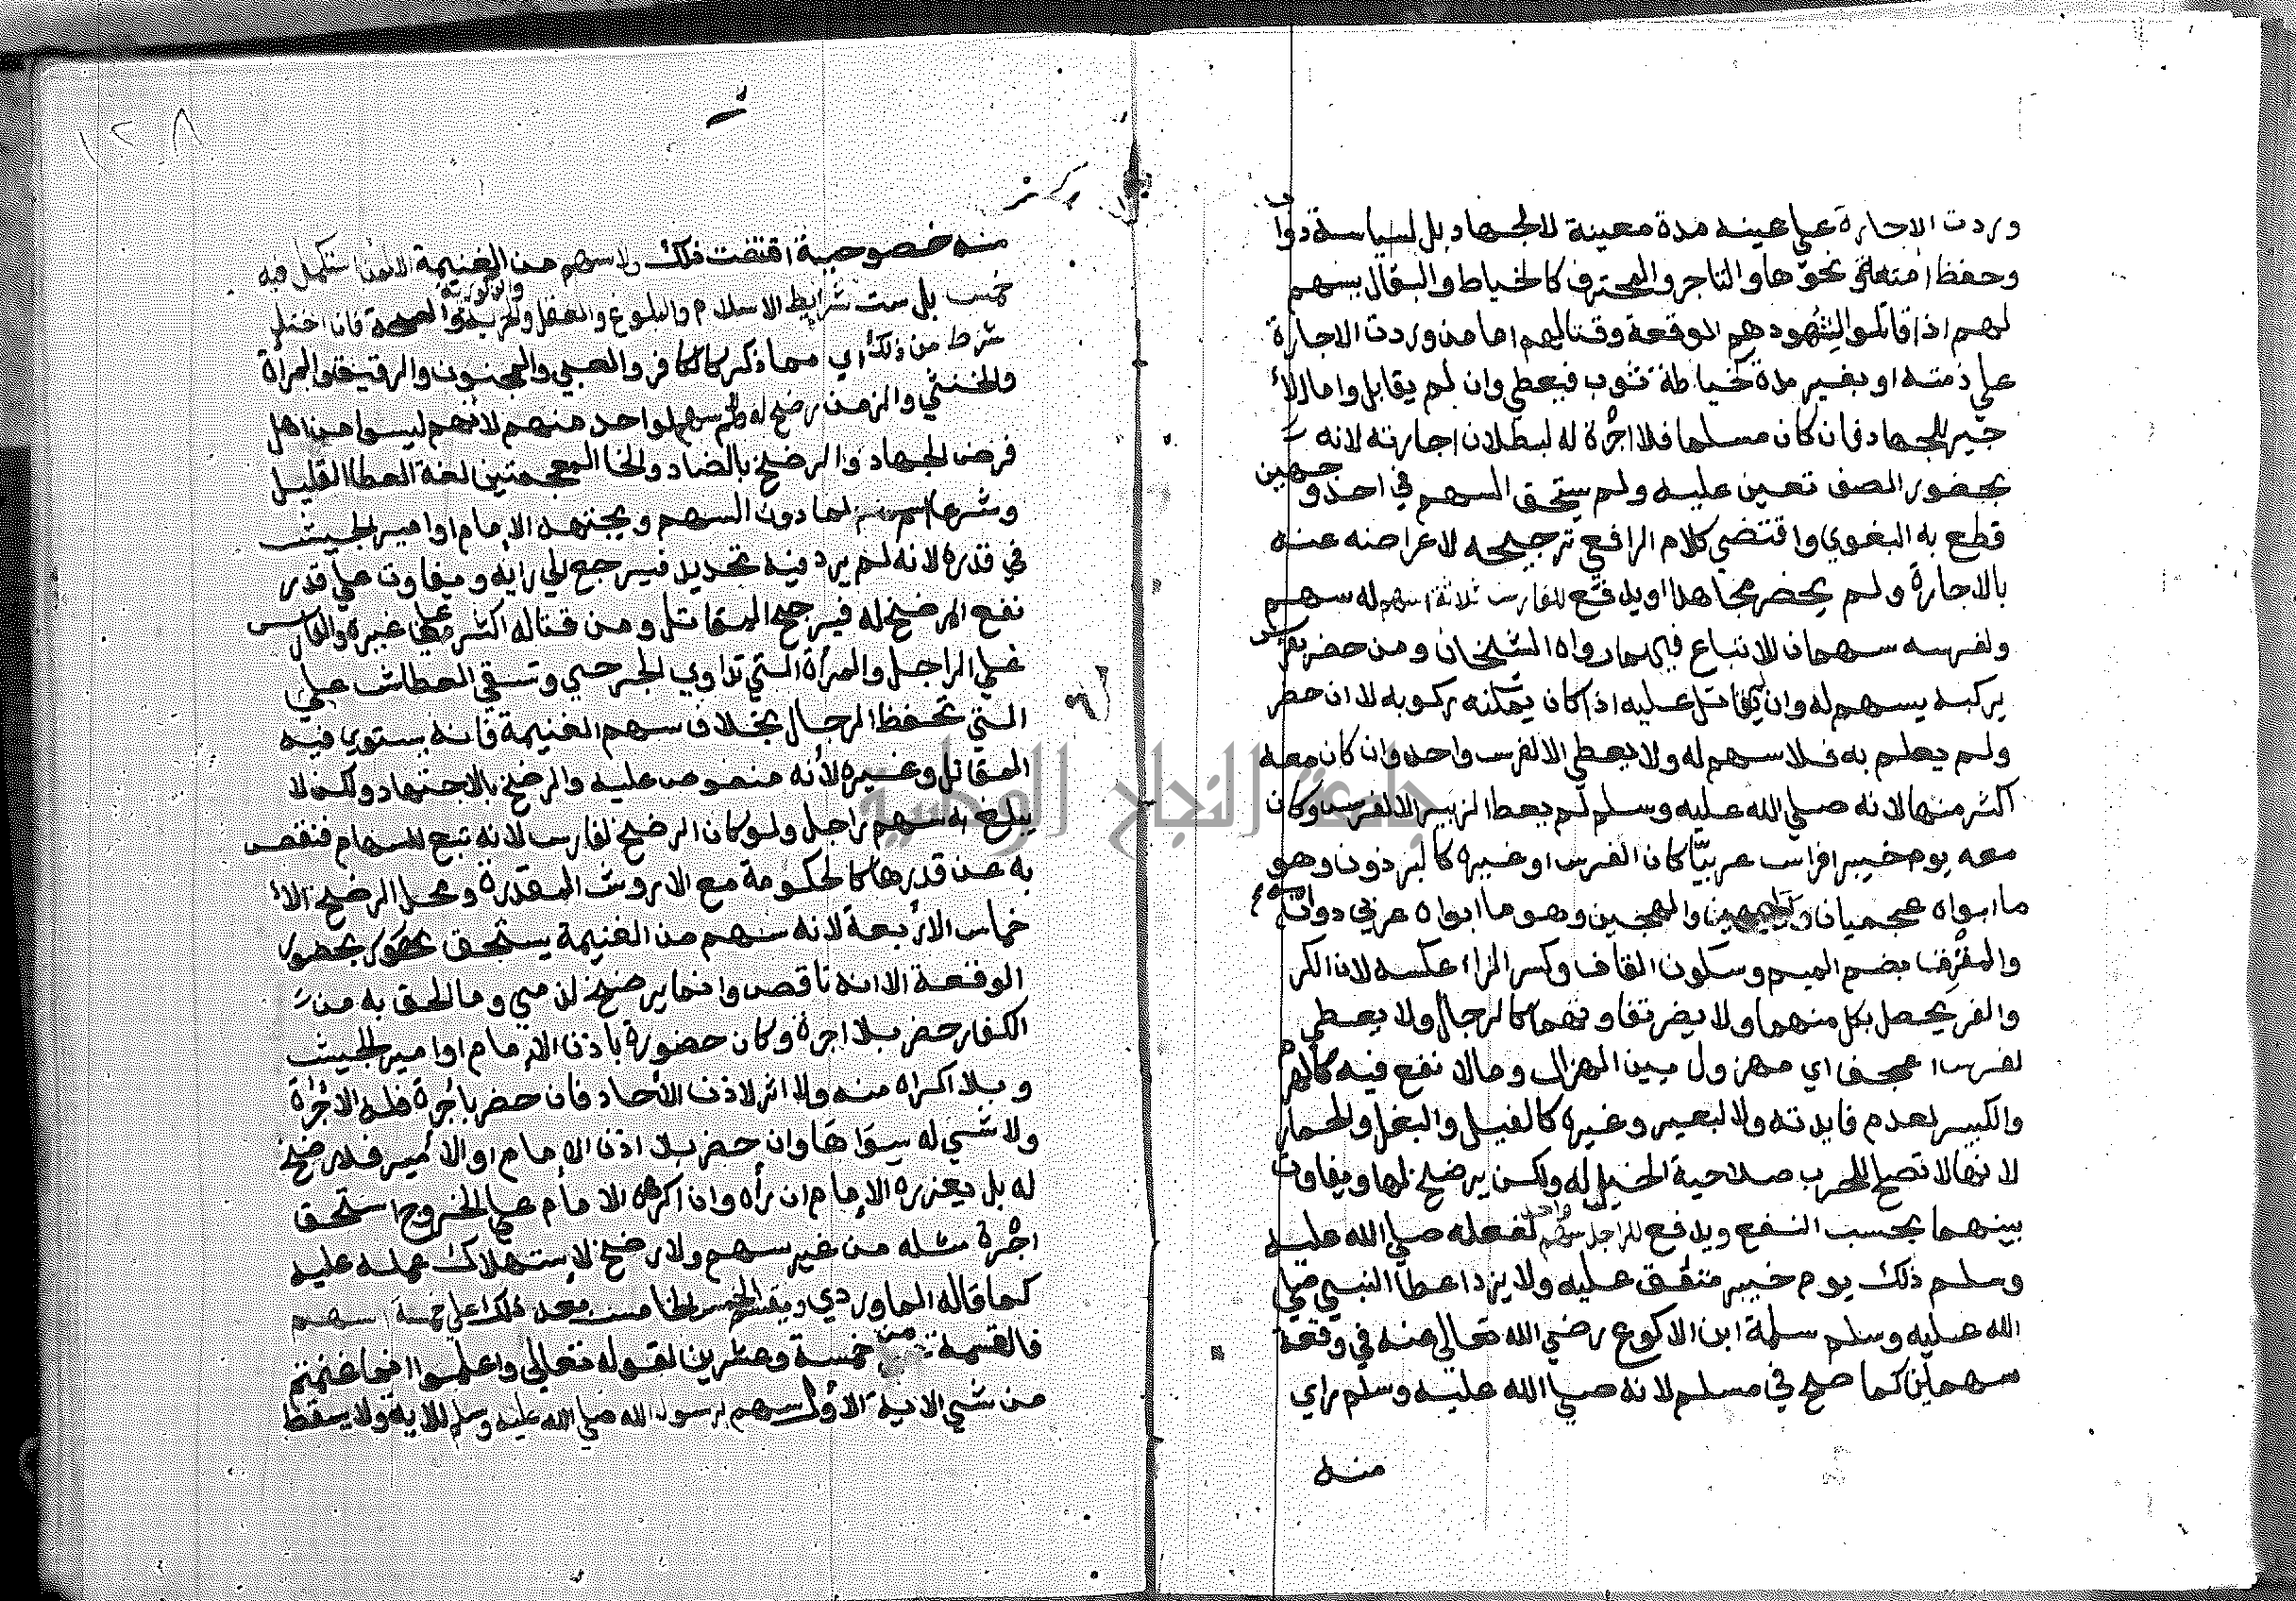 وردت الاجارة علي عينه مدة معينة لا لجهاد بل لسياسة دواب
وحفظ امتعة ونحوها والتاجر والمحترف كالخياط والبقال يسهم
لهم اذا قاتلوا لشهودهم الوقعة وقتالهم اما من وردت الاجارة
علي ذمته او بغير مدة كخياطة ثوب فيعطي وان لم يقاتل واما الأ
جير للجهاد فان كان مسلما فلا اجرة له لبطلان اجارته لانه
بحضور الصف تعين عليه ولم يستحق السهم في احد وجهين
قطع به البغوي واقتضي كلام الرافعي ترجيحه لاعراضه عنه
بالاجارة ولم يحضر مجاهدا ويدفع للفارس ثلاثة اسهم له سهم
ولفرسه سهمان للاتباع فيهما رواه الشيخان ومن حضر بفرس
يركبه يسهم له وان لم يقاتل عليه اذا كان يمكنه ركوبه لا ان حضر
ولم يعلم به فلا سهم له ولا يعطي الا لفرس واحد وان كان معه
اكثر منها لانه صلي الله عليه وسلم لم يعط الزبير الا لفرس وكان
معه يوم خيبر افراس عربيّا كان الفرس او غيره كالبرذون وهو
ما ابواه عجميان والهجين وهو ما ابواه عربي دون امه
والمقرِف بضم الميم وسكون القاف وكسر الراء عكسه لان الكر
والفر يحصل بكل منهما ولا يضر تفاوتهما كالرجال ولا يعطي
لفرس اعجف اي مهزول بين الهزال وما لا نفع فيه كالهرم
والكبير لعدم فايدته ولا لبعير وغيره كالفيل والبغل والحمار
لانها لا تصلح للحرب صلاحية الخيل له ولكن يرضخ لها ويفاوت
بينهما بحسب النفع ويدفع للراجل سهم واحد لفعله صلي الله عليه
وسلم ذلك يوم خيبر متفق عليه ولا يرد اعطا النبي صلي
الله عليه وسلم سلمة ابن الاكوع رضي الله تعالى عنه في وقعة
سهمين كما صح في مسلم لانه صلي الله عليه وسلم راي
منه
١٢٨
منه خصوصية اقتضت ذلك ولا سهم من الغنيمة الا لمن استكمل فيه
خمس بل ست شرايط الاسلام والبلوغ والعقل والحرية والذكورية والصحة فان اختل
شرط من ذلك اي مما ذكر كالكافر والصبي والمجنون والرقيق والمراة
والخنثي والزمن رضخ له ولم يسهم لواحد منهم لانهم ليسوا من اهل
فرض الجهاد والرضخ بالضاد والخا المعجمتين لغة العطا القليل
وشرعا اسم لما دون السهم ويجتهد الامام او امير الجيش
في قدره لانه لم يرد فيه تحديد فيرجع الي رايه ويفاوت علي قدر
نفع المرضخ له فيرجح المقاتل ومن قتاله اكثر علي غيره والفارس
علي الراجل والمرأة التي تداوي الجرحي وتسقي العطاش علي
التي تحفظ الرحال بخلاف سهم الغنيمة فانه يستوي فيه
المقاتل وغيره لأنه منصوص عليه والرضخ بالاجتهاد ولكن لا
يبلغ به سهم راجل ولو كان الرضخ لفارس لانه تبع للسهام فنقص
به عن قدرها كالحكومة مع الاروش المقدرة ومحل الرضخ الأ
خماس الأربعة لانه سهم من الغنيمة يستحق بحضور
الوقعة الا انه ناقص وانما يرضخ لذمي وما لحق به من
الكفار حضر بلا اجرة وكان حضوره باذن الامام او امير الجيش
وبلا اكراه منه ولا اثر لاذن الأحاد فان حضر باجُرة فله الاجُرة
ولا شي له سوَاهَا وان حضر بلا اذن الامام او الامير فلا رضخ
له بل يعزره الامام ان رأه وان اكرهه الامام علي الخروج استحق
اجُرة مثله من غير سهم ولا رضخ لاستهلاك عمله عليه
كما قاله الماوردي ويقسم الخمس الخامس بعد ذلك علي خمسة اسهم
فالقسمة من خمسة وعشرين لقوله تعالي واعلموا انما غنمتم
من شي الاية الأول سهم لرسول الله صلي الله عليه وسلم للاية ولا يسقط